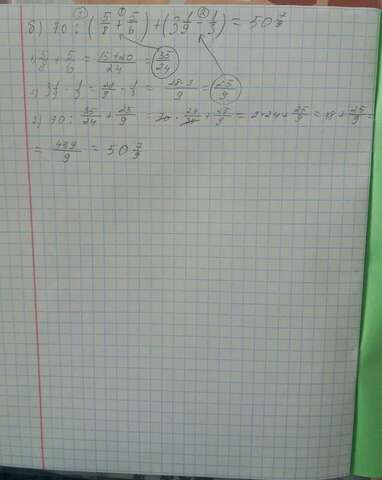 б) 70 : (5/8 + 5/6) + (3 1/9 - 1/3) = 50 7/9
1) 5/8 + 5/6 = 15+20/24 = 35/24
2) 3 1/9 - 1/3 = 28/9 - 1/3 = 28-3/9 = 25/9
3) 70 : 35/24 + 25/9 = 70 · 24/35 + 25/9 = 2·24 + 25/9 = 48 + 25/9 =
= 459/9 = 50 7/9